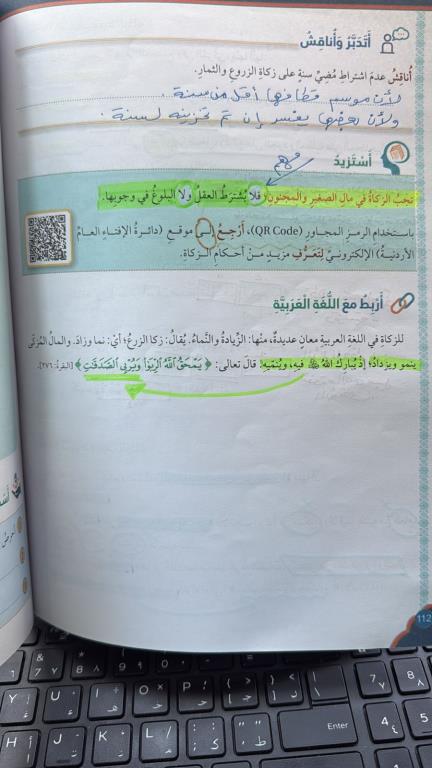 أَتَدَبَّرُ وَأُناقِشُ
أُناقِشُ عدمَ اشتراطِ مُضِيِّ سنةٍ على زكاةِ الزروعِ والثمارِ.
لأن موسم قطافها أقل من سنة.
ولأن بعضها يفسد إن تم تخزينه لسنة.
أَسْتَزيدُ
مهم
تجبُ الزكاةُ في مالِ الصغيرِ والمجنونِ؛ فلا يُشتَرَطُ العقلُ ولا البلوغُ في وجوبِها.
باستخدامِ الرمزِ المجاورِ (QR Code)، أَرْجِعُ إلى موقعِ (دائرةُ الإفتاءِ العامِّ
الأردنيةُ) الإلكترونيِّ لِتَعرُّفِ مزيدٍ منْ أحكامِ الزكاةِ.
أَرْبِطُ معَ اللُّغَةِ العَرَبِيَّةِ
للزكاةِ في اللغةِ العربيةِ معانٍ عديدةٌ، منْها: الزِّيادةُ والنَّماءُ. يُقالُ: زكا الزرعُ؛ أيْ: نما وزادَ. والمالُ المُزَكّى
ينمو ويزدادُ؛ إذْ يُبارِكُ اللهُ ﷻ فيهِ، ويُنَمّيهِ؛ قالَ تعالى: ﴿يَمْحَقُ ٱللَّهُ ٱلرِّبَوٰا۟ وَيُرْبِى ٱلصَّدَقَـٰتِ﴾ [البقرة: ٢٧٦].
112
& 7 ٧
* 8 ٨
( 9 ٩
) 0 ٠
Y
U
I
O
P
H
J
K
L
Enter
7
8
4
5